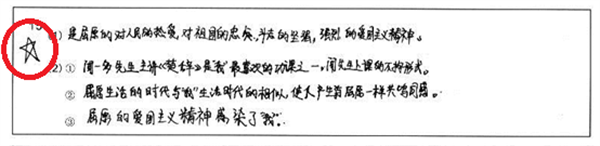 (1) 是屈原的对人民的热爱,对祖国的忠贞,斗志的坚强,强烈的爱国主义精神。
(2)① 闻一多先生主讲《楚辞》是我最喜欢的功课之一,闻先生上课的不拘形式。
② 屈原生活的时代与"我"生活时代的相似,使人产生着屈原一样共鸣同感。
③ 屈原的爱国主义精神感染了"我"。